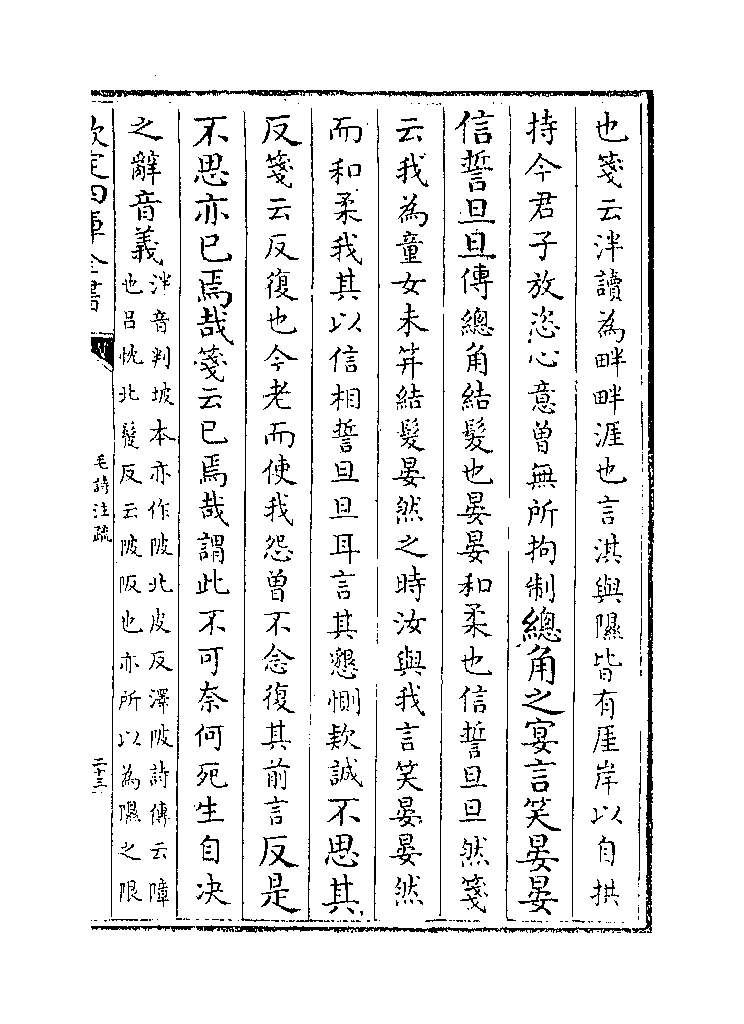 也箋云泮讀為畔畔涯也言淇與隰皆有厓岸以自拱
持今君子放恣心意曽無所拘制總角之宴言笑晏晏
信誓旦旦傳總角結髮也晏晏和柔也信誓旦旦然箋
云我為童女未笄結髮晏然之時汝與我言笑晏晏然
而和柔我其以信相誓旦旦耳言其懇惻欵誠不思其
反箋云反復也今老而使我怨曽不念復其前言反是
不思亦已焉哉箋云已焉哉謂此不可奈何死生自决
之辭音義
泮音判坡本亦作陂北皮反澤陂詩傳云障
也吕忱北髮反云陂阪也亦所以為隰之限
欽定四庫全書
毛詩注疏
二十三